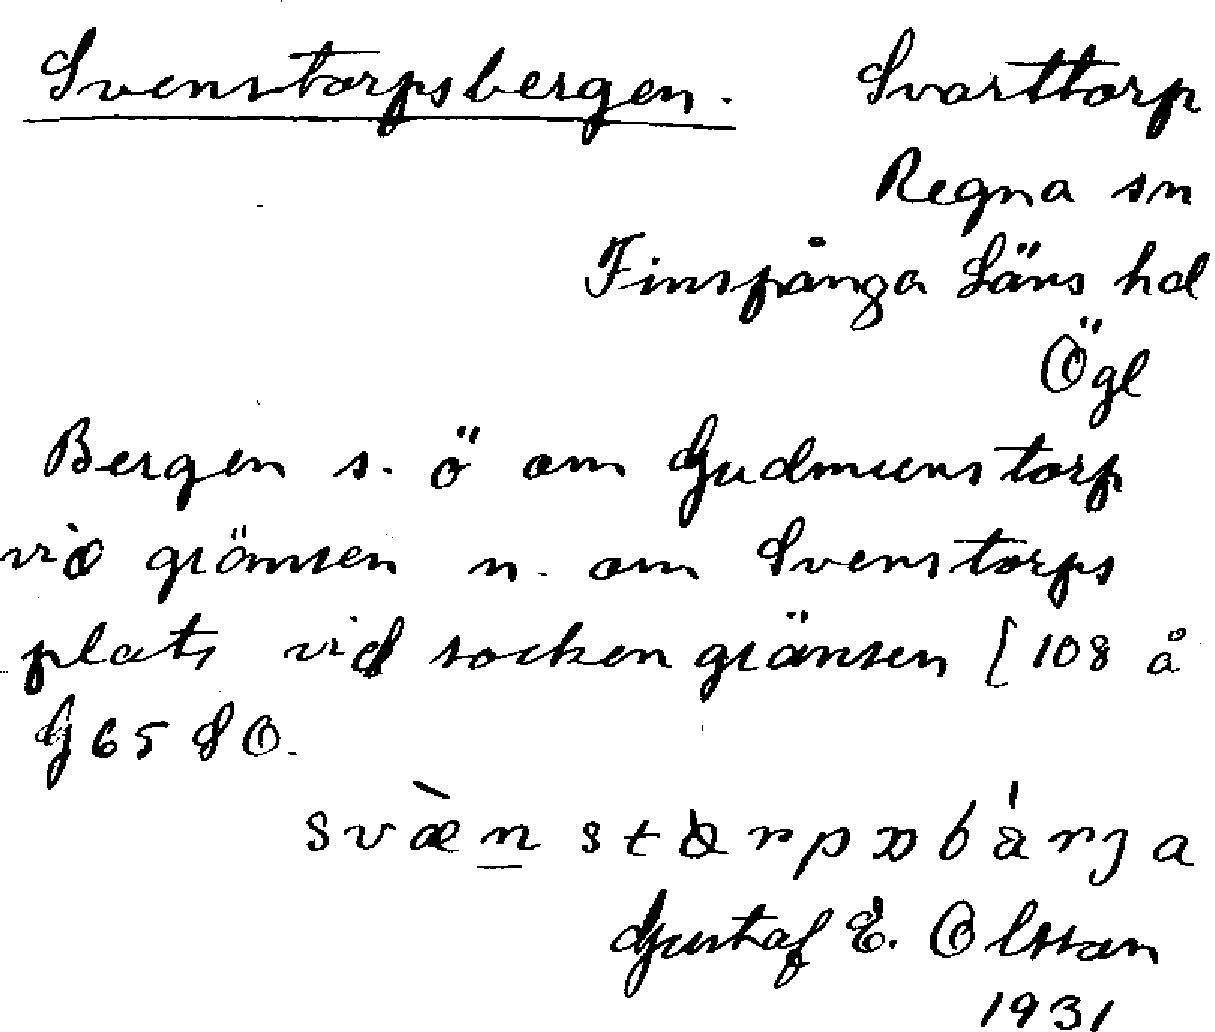 Svenstorpsbergen. Svarttorp
Regna sn
Finspånga Läns hd
Ögl
Bergen s. ö om Gudmunstorp
vid gränsen n. om Svenstorps
plats vid sockengränsen [108 å
G65 SO.
Gustaf E. Olsson
1931